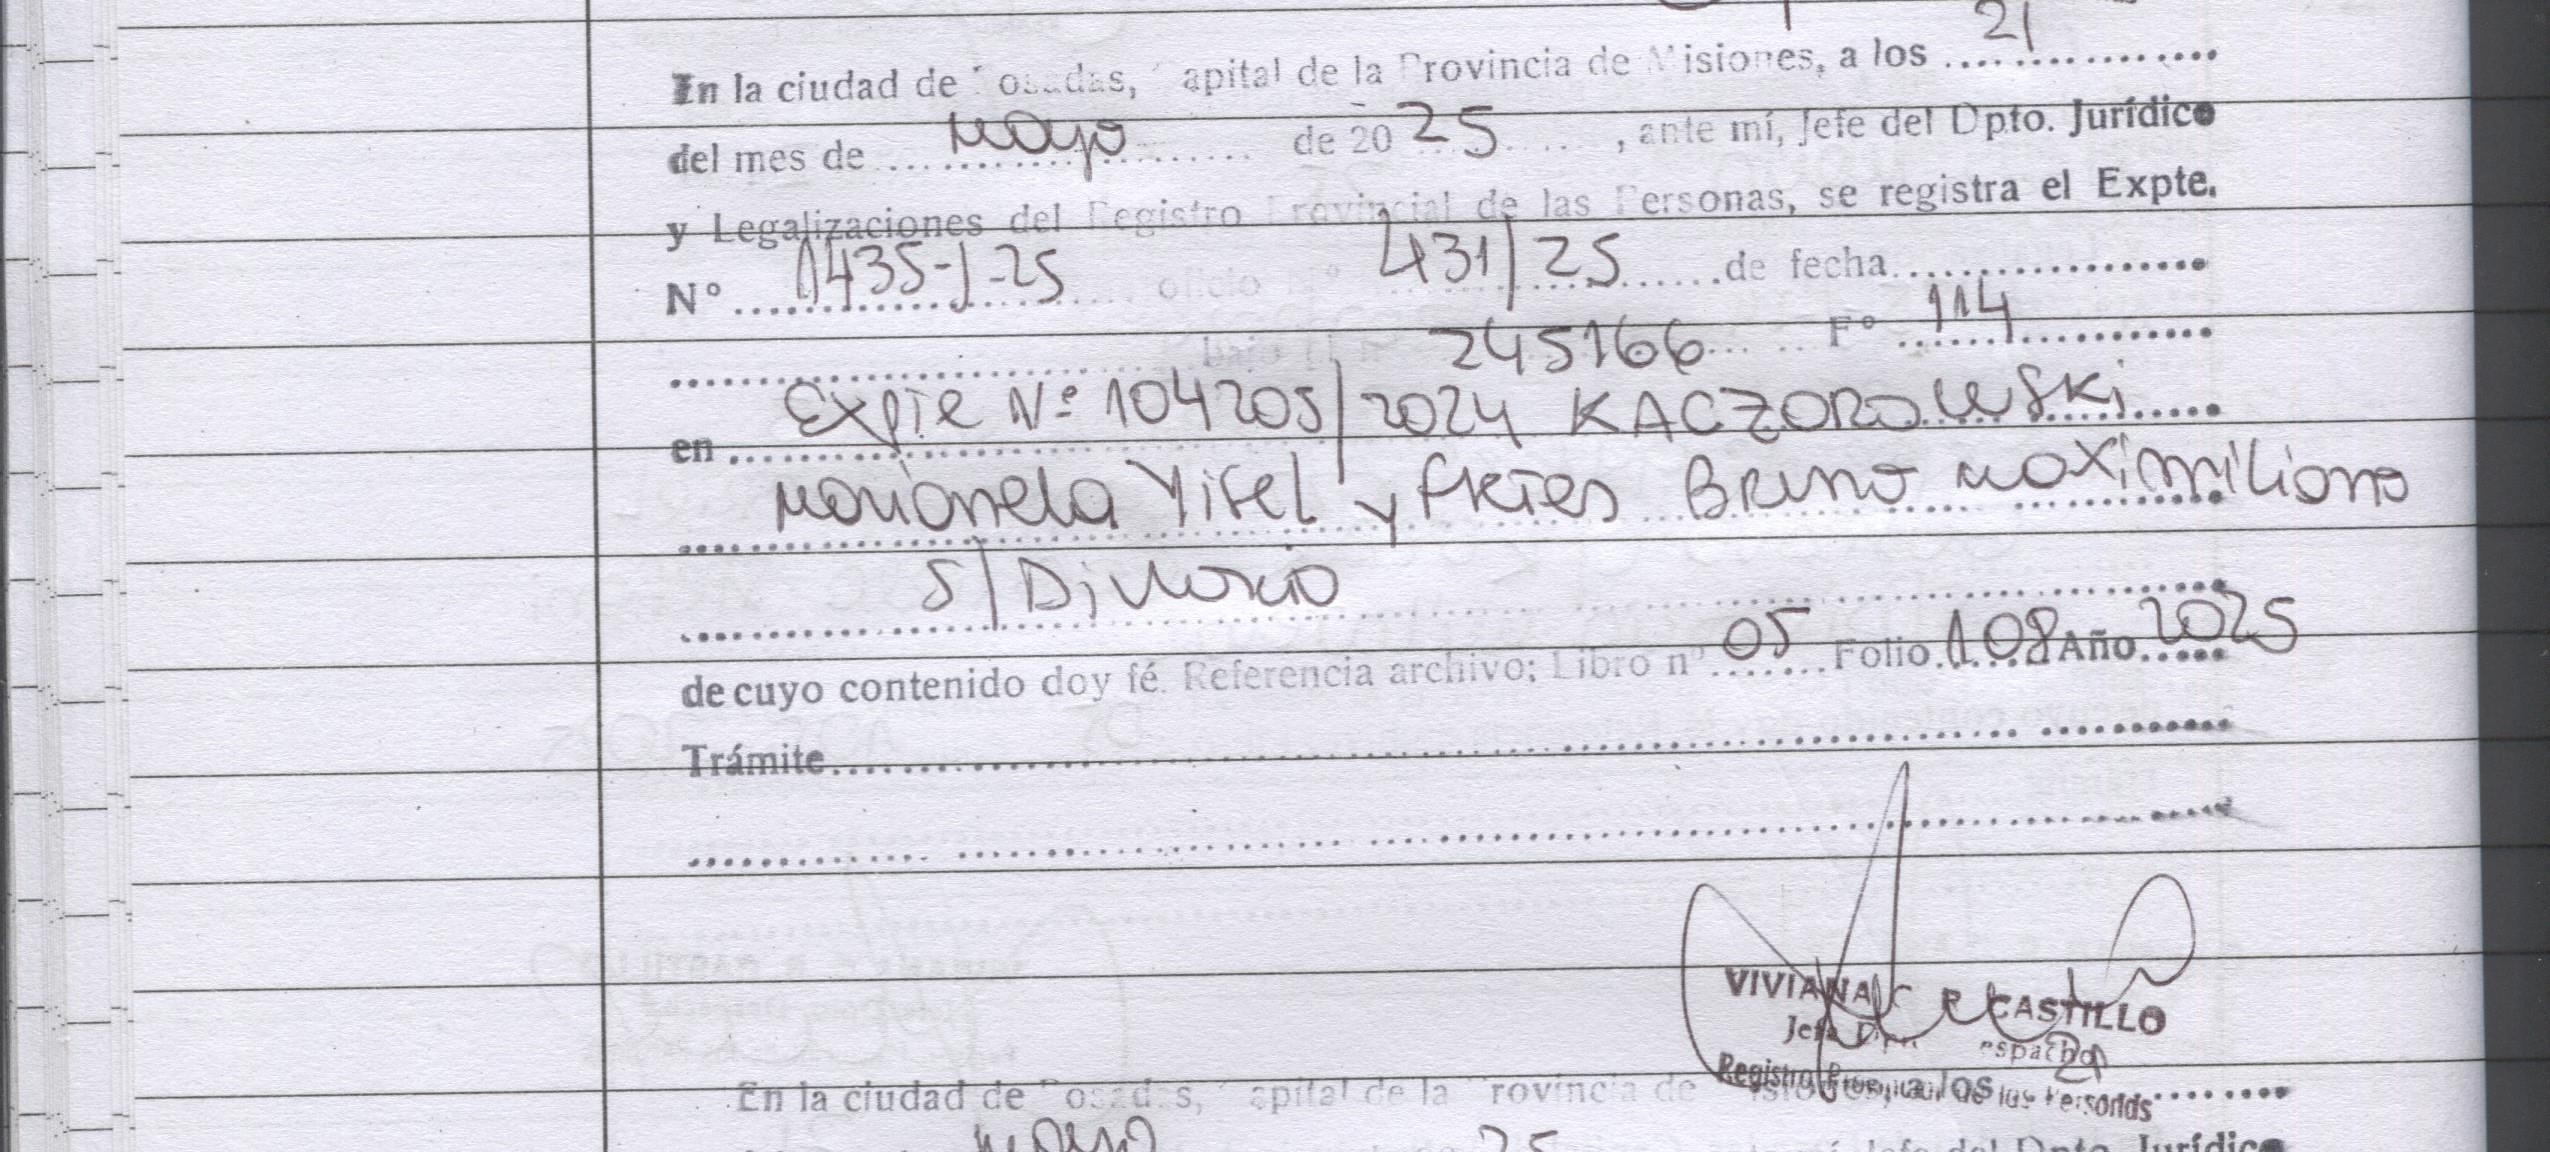 En la ciudad de Posadas, Capital de la Provincia de Misiones, a los 21
del mes de mayo de 20 25, ante mí, Jefe del Dpto. Jurídico
y Legalizaciones del Registro Provincial de las Personas, se registra el Expte.
N° 1435-J-25 oficio N° 431/25 de fecha
bajo el n° 245166 F° 114
en Expte Nº 104205/2024 KACZOROWSKI
Marianela Yisel y Fretes Bruno Maximiliano
S/ Divorcio
de cuyo contenido doy fé. Referencia archivo: Libro nº 05 Folio 108 Año 2025
Trámite
VIVIANA C. R. CASTILLO
Jefa Dpto. Despacho
Registro Provincial de las Personas
En la ciudad de Posadas, Capital de la Provincia de Misiones, a los 21
mayo 25 Jefe del Dpto. Jurídico